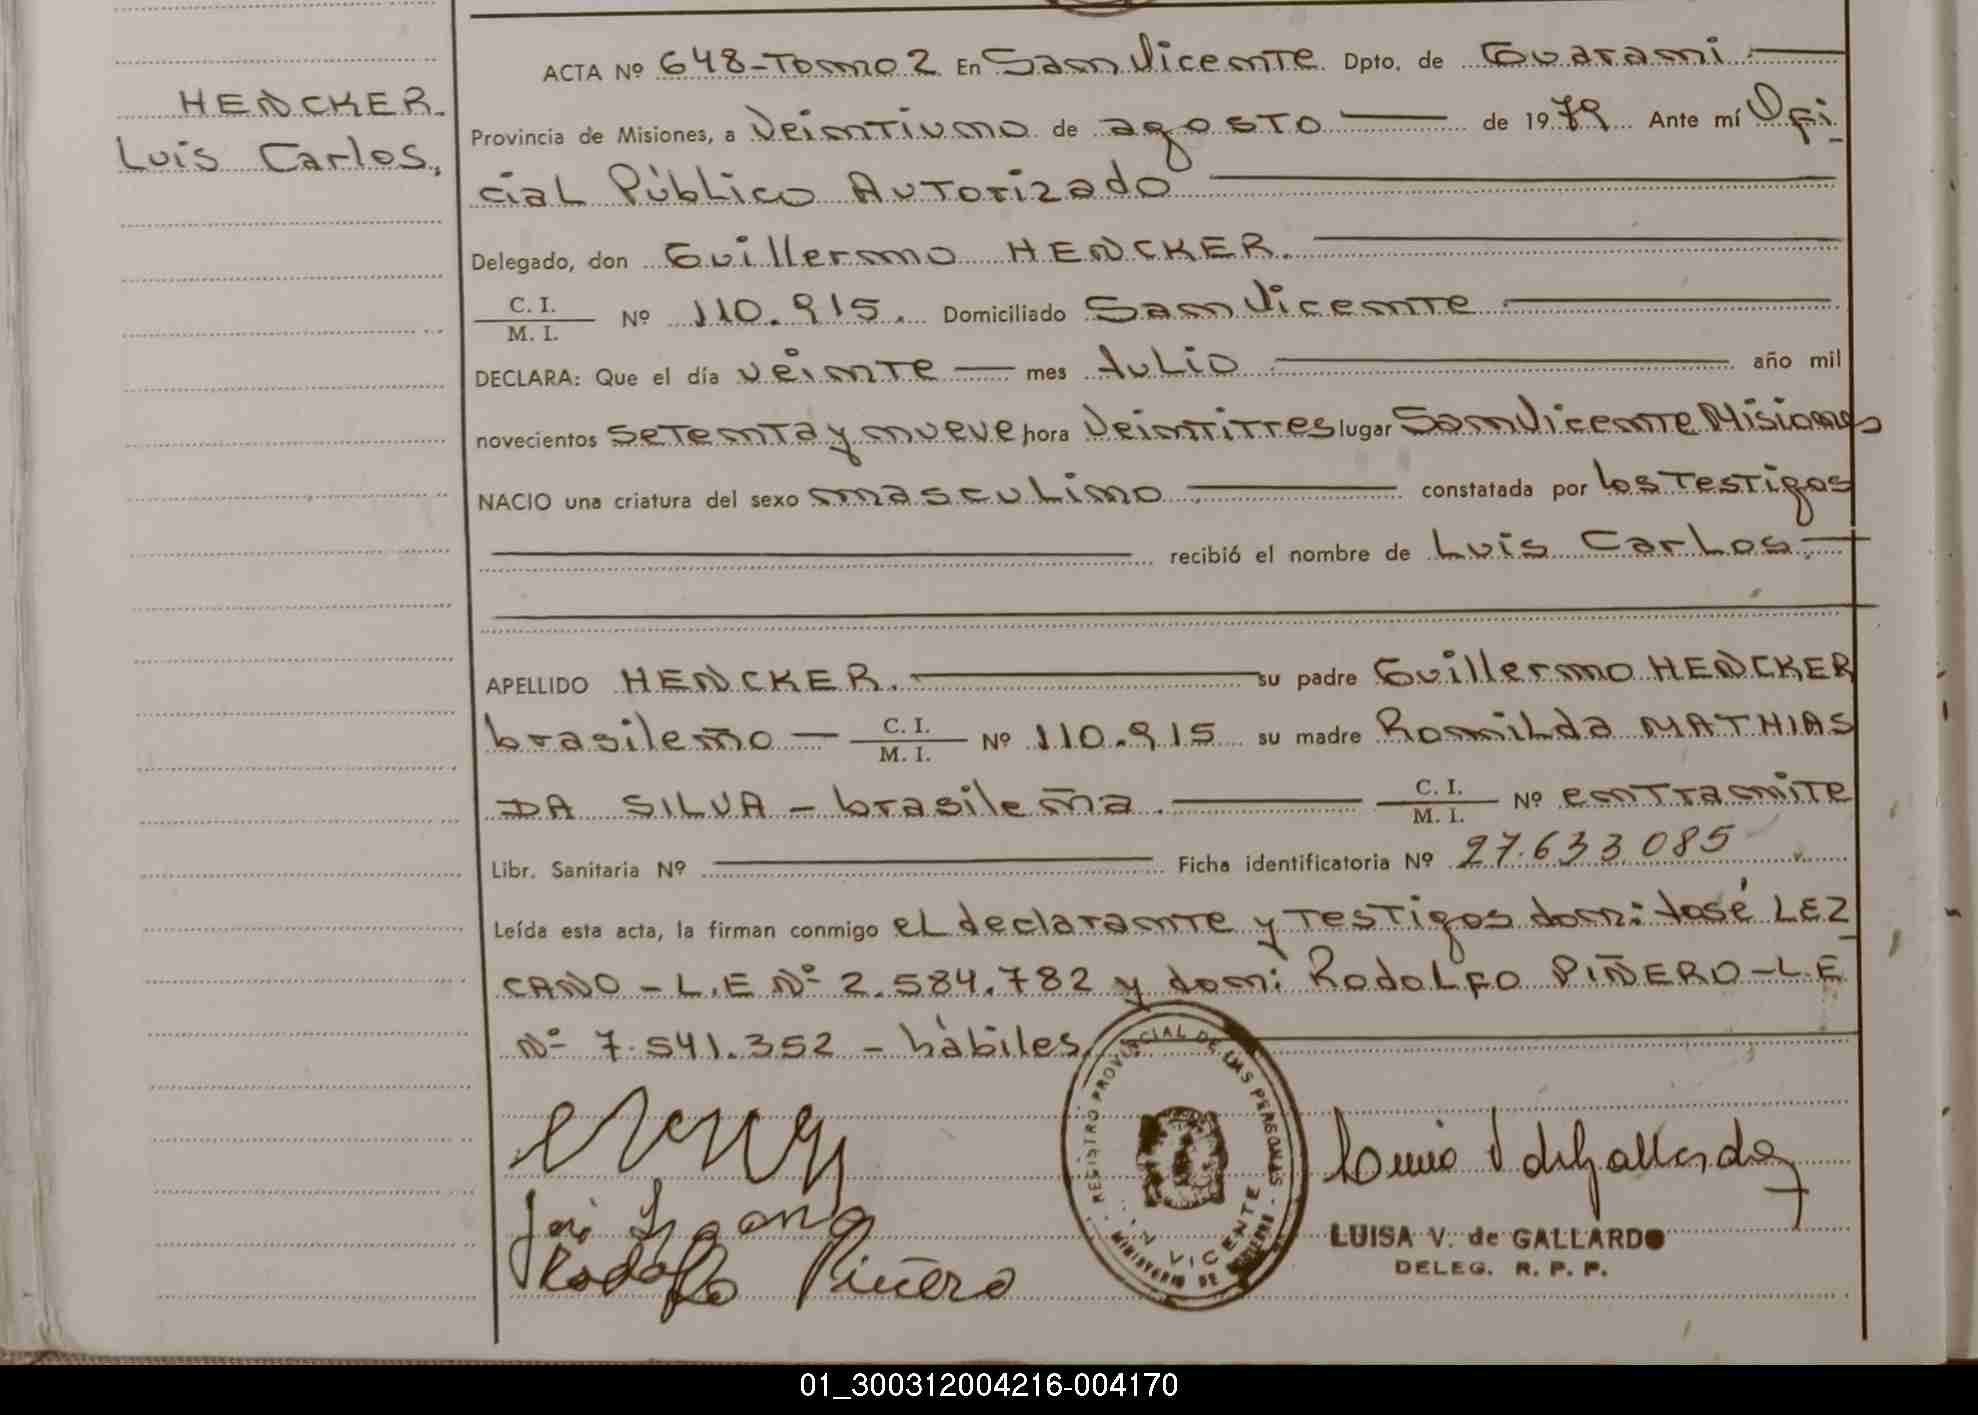 HENCKER.
Luis Carlos,
ACTA Nº 648-Tomo 2 En San Vicente Dpto. de Guarani
Provincia de Misiones, a Veintiuno de agosto de 1979 Ante mí Ofi
cial Público Autorizado
Delegado, don Guillermo HENCKER.
C. I.
M. I. Nº 110.915. Domiciliado San Vicente
DECLARA: Que el día veinte mes Julio año mil
novecientos setenta y nueve hora Veintitres lugar San Vicente Misiones
NACIO una criatura del sexo masculino constatada por los Testigos
recibió el nombre de Luis Carlos
APELLIDO HENCKER. su padre Guillermo HENCKER
brasileño C. I.
M. I. Nº 110.915 su madre Romilda MATHIAS
DA SILVA - brasileña. C. I.
M. I. Nº en tramite
Libr. Sanitaria Nº Ficha identificatoria Nº 27.633.085
Leída esta acta, la firman conmigo el declarante y Testigos don: José LEZ
CANO - L.E Nº 2.584.782 y don: Rodolfo PIÑERO - L.E
Nº 7.541.352 - hàbiles
REGISTRO PROVINCIAL DE LAS PERSONAS
MINISTERIO DE GOBIERNO
N VICENTE
Rodolfo Piñero
LUISA V. de GALLARDO
DELEG. R. P. P.
01_300312004216-004170